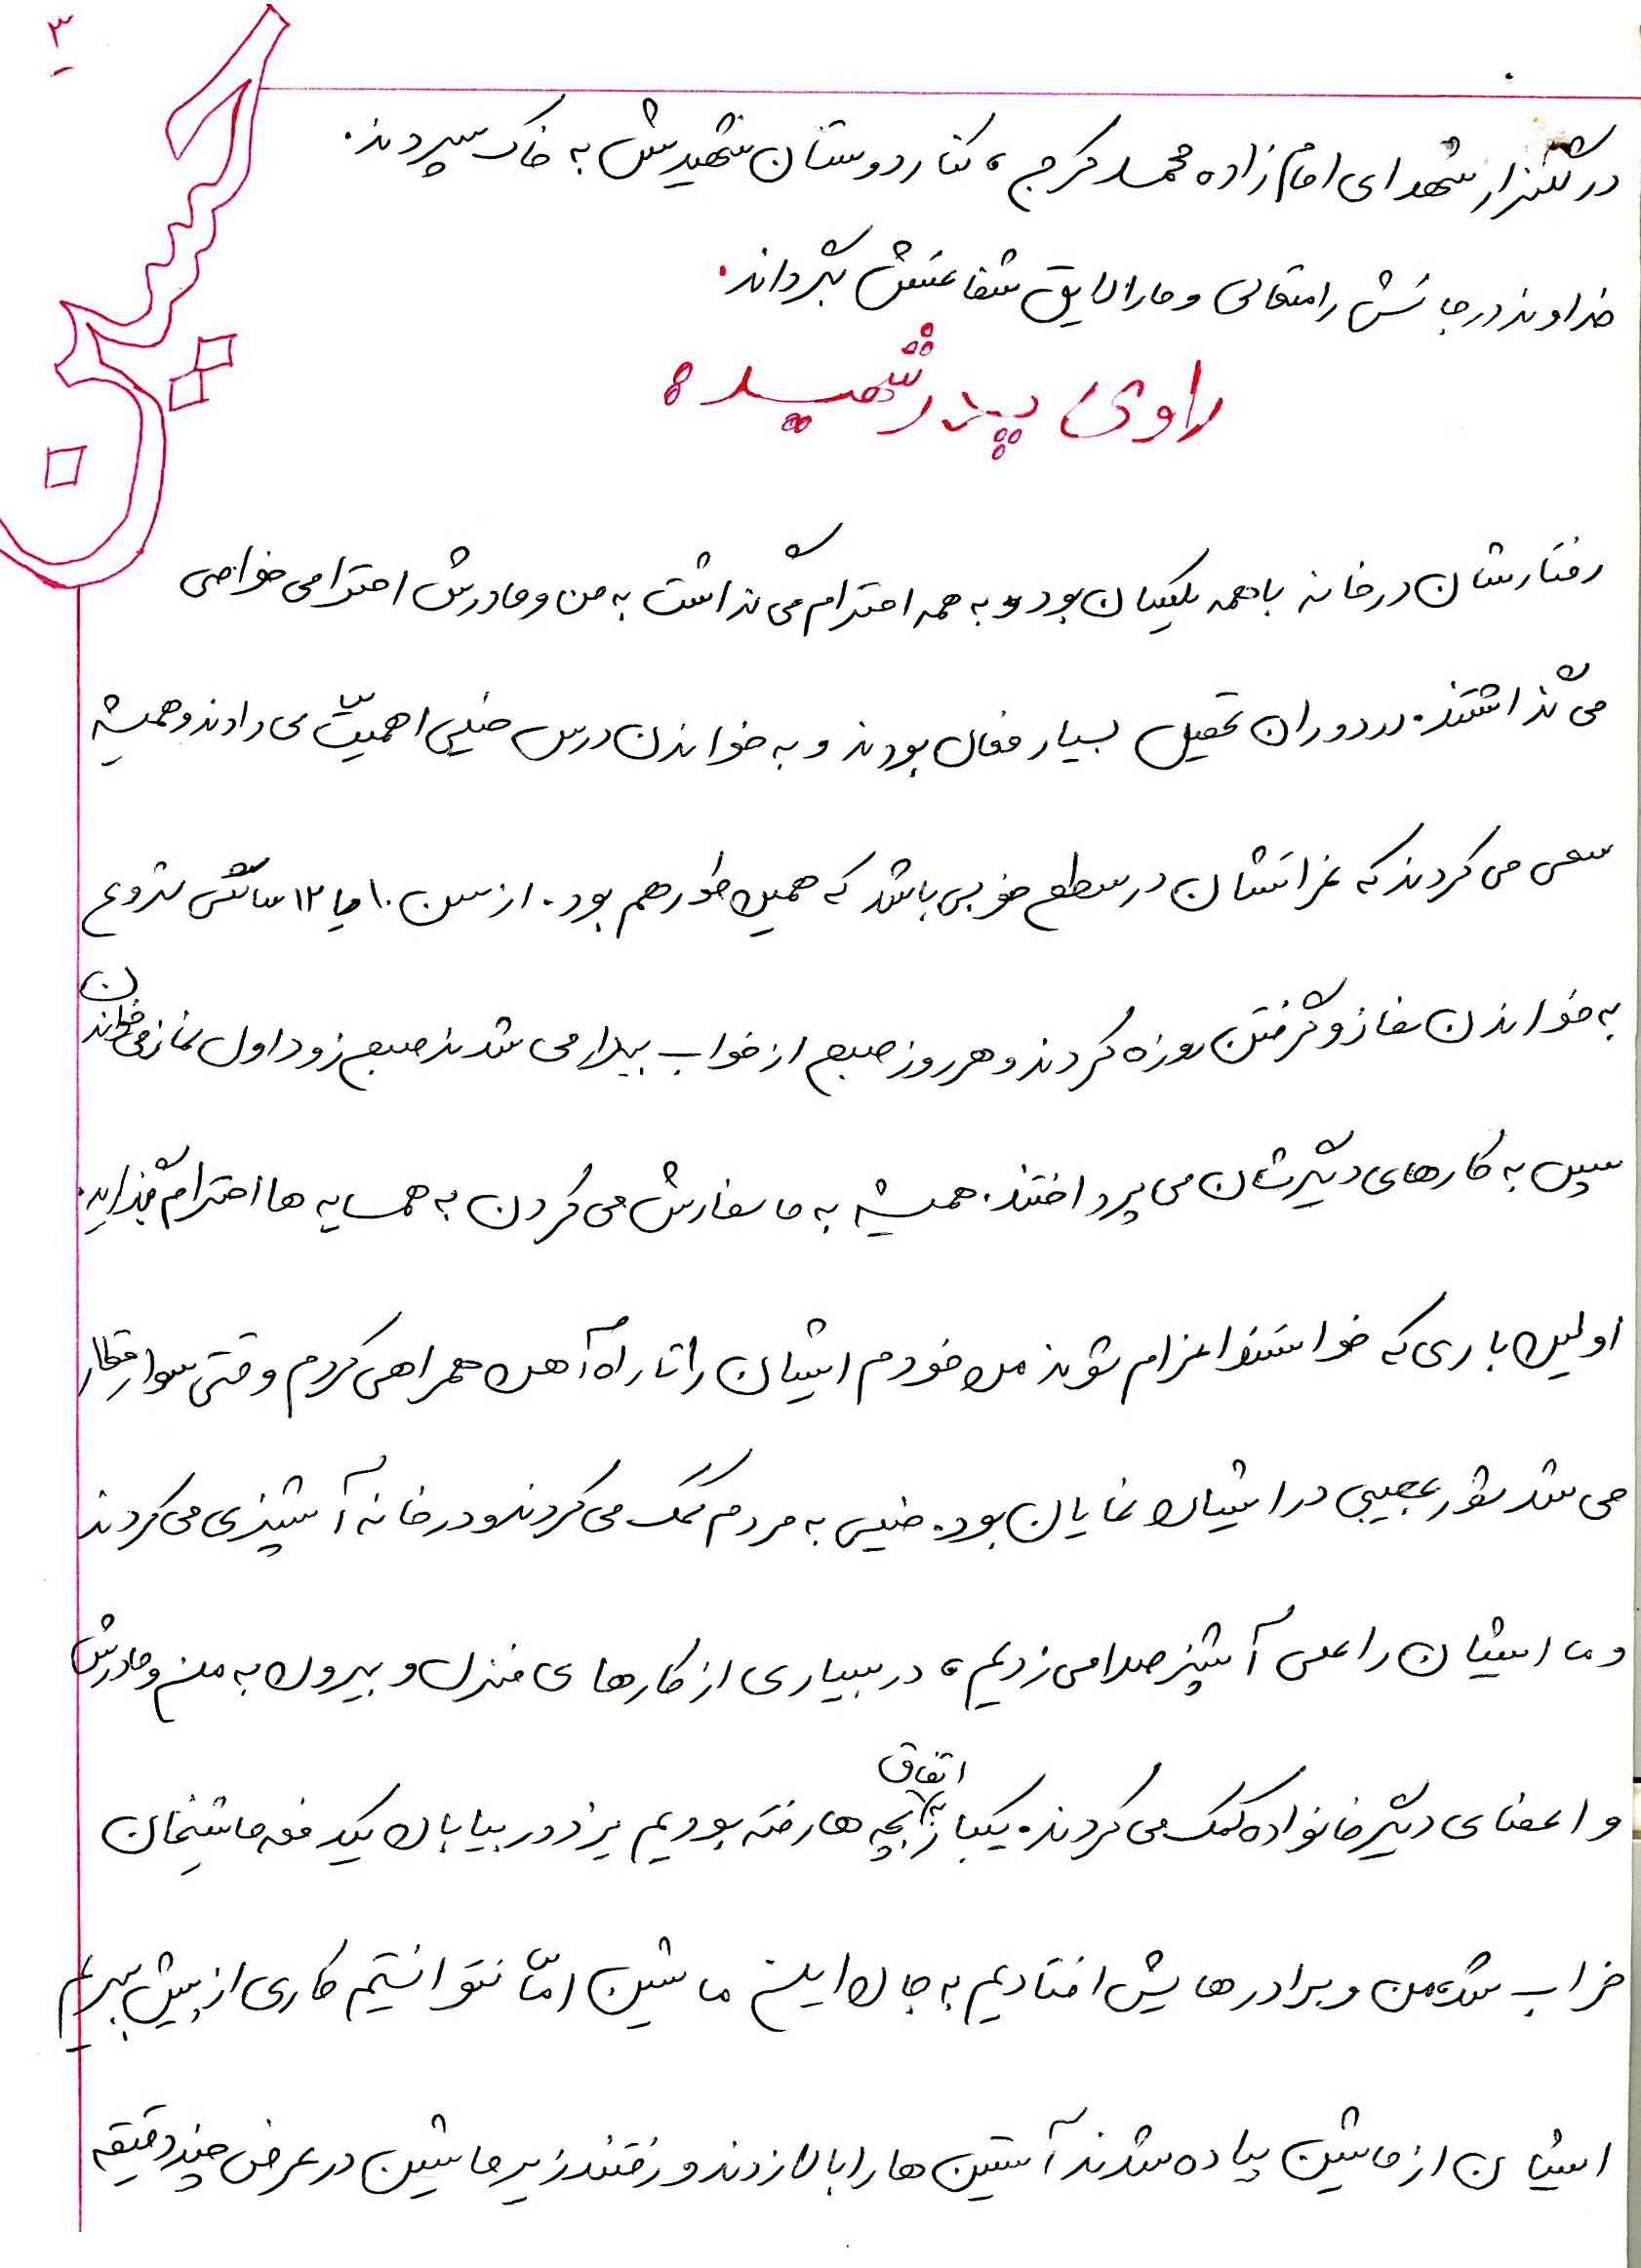 ۳
حسین
در گلزار شهدای امام زاده محمد کرج، کنار دوستان شهیدش به خاک سپردند.
خداوند درجاتش را متعالی و ما را لایق شفاعتش بگرداند.
راوی پدر شهید:
رفتارشان در خانه با همه یکسان بود و به همه احترام می گذاشت به من و مادرش احترامی خواصی
می گذاشتند. در دوران تحصیل بسیار فعال بودند و به خواندن درس خیلی اهمیّت می دادند و همیشه
سعی می کردند که نمراتشان در سطح خوبی باشد که همین طور هم بود. از سن ۱۰ یا ۱۲ سالگی شروع
به خواندن نماز و گرفتن روزه کردند و هر روز صبح از خواب بیدار می شدند صبح زود اول نماز می خواندن
سپس به کارهای دیگرشان می پرداختند. همیشه به ما سفارش می کردن به همسایه ها احترام بگذارید.
اولین باری که خواستند اعزام شوند من خودم ایشان را تا راه آهن همراهی کردم وقتی سوار قطار
می شد شور عجیبی در ایشان نمایان بود. خیلی به مردم کمک می کردند و در خانه آشپزی می کردند
و ما ایشان را علی آشپز صدا می زدیم، در بسیاری از کارهای منزل و بیرون به من و مادرش
و اعضای دیگر خانواده کمک می کردند. یکبار به اتفاق بچه ها رفته بودیم یزد در بیابان یکدفعه ماشینمان
خراب شد، من و برادرهایش افتادیم به جان این ماشین امّا نتوانستیم کاری از پیش ببریم
ایشان از ماشین پیاده شدند آستین ها را بالا زدند و رفتند زیر ماشین در عرض چند دقیقه